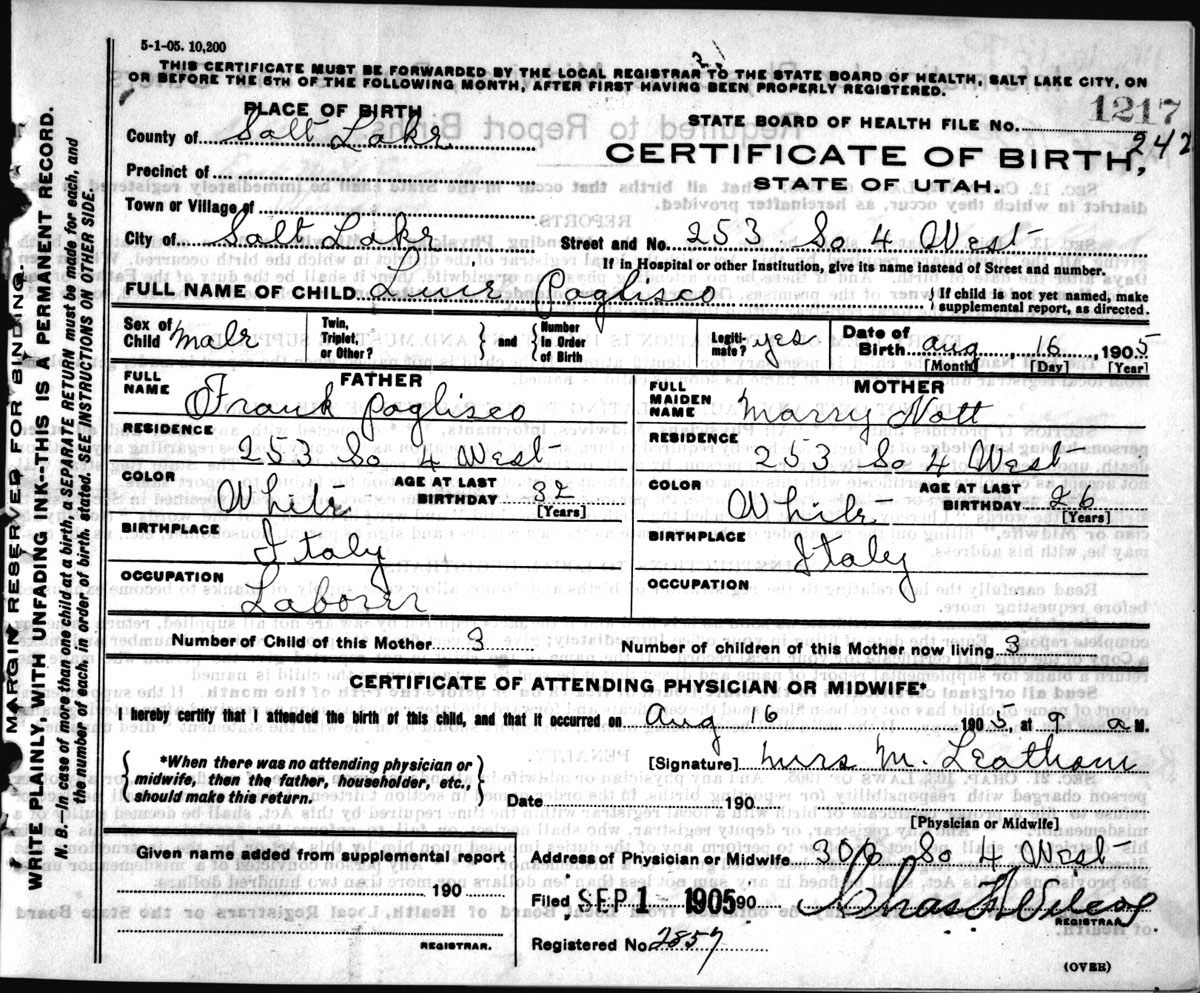 5-1-05. 10,200
21
THIS CERTIFICATE MUST BE FORWARDED BY THE LOCAL REGISTRAR TO THE STATE BOARD OF HEALTH, SALT LAKE CITY, ON
OR BEFORE THE 5TH OF THE FOLLOWING MONTH, AFTER FIRST HAVING BEEN PROPERLY REGISTERED.
PLACE OF BIRTH
STATE BOARD OF HEALTH FILE No. 1217
County of Salt Lake
242
CERTIFICATE OF BIRTH,
Precinct of
STATE OF UTAH.
Town or Village of
City of Salt Lake Street and No. 253 So 4 West
If in Hospital or other Institution, give its name instead of Street and number.
FULL NAME OF CHILD Luir Paglisco { If child is not yet named, make supplemental report, as directed.
Sex of Child male Twin, Triplet, or Other? } and { Number in Order of Birth Legiti- mate? yes Date of Birth Aug 16, 1905
[Month] [Day] [Year]
FATHER MOTHER
FULL NAME Frank Paglisco FULL MAIDEN NAME Marry Nott
RESIDENCE 253 So 4 West RESIDENCE 253 So 4 West
COLOR White AGE AT LAST BIRTHDAY 32 [Years] COLOR White AGE AT LAST BIRTHDAY 26 [Years]
BIRTHPLACE Italy BIRTHPLACE Italy
OCCUPATION Laborer OCCUPATION
Number of Child of this Mother 3 Number of children of this Mother now living 3
CERTIFICATE OF ATTENDING PHYSICIAN OR MIDWIFE*
I hereby certify that I attended the birth of this child, and that it occurred on Aug 16 1905 at 9 a M.
{ *When there was no attending physician or midwife, then the father, householder, etc., should make this return. } [Signature] Mrs M. Leatham
Date 190
[Physician or Midwife]
Given name added from supplemental report Address of Physician or Midwife 306 So 4 West
190 Filed SEP 1 - 1905 90 Chas F Wilcox
REGISTRAR. REGISTRAR.
Registered No. 2857
(OVER)
MARGIN RESERVED FOR BINDING.
WRITE PLAINLY, WITH UNFADING INK—THIS IS A PERMANENT RECORD.
N. B.—In case of more than one child at a birth, a SEPARATE RETURN must be made for each, and
the number of each, in order of birth, stated. SEE INSTRUCTIONS ON OTHER SIDE.